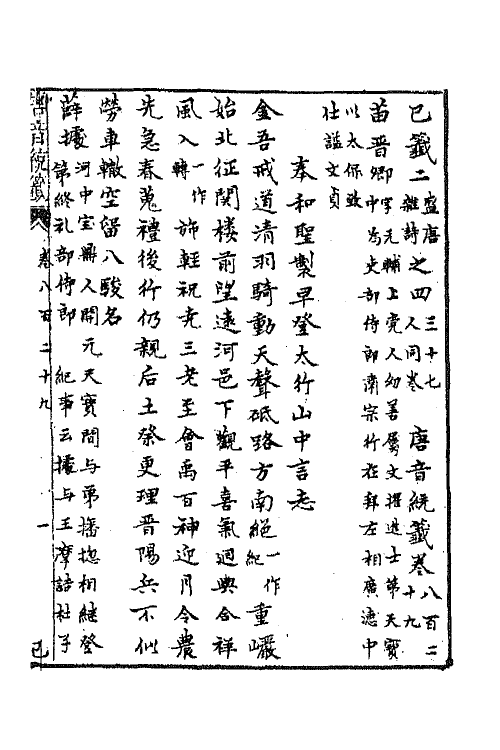 巳籤二 盛唐雜詩之四 三十七人同卷 唐音統籤卷八百二十九
苗晉卿 字元輔上党人幼善屬文擢進士第天寶
中爲吏部侍郎肅宗行在拜左相廣德中
以太保致
仕謚文貞
奉和聖製早登太行山中言志
金吾戒道清羽騎動天聲砥路方南絕 一作紀 重巖
始北征関樓前望遠河邑下觀平喜氣迴輿合祥
風入 一作轉 旆輕祝堯三老至會禹百神迎月令農
先急春蒐禮後行仍親后土祭更理晉陽兵不似
勞車轍空留八駿名
薛據 河中宝鼎人開元天寶間与弟播揔相継登
第終礼部侍郎 紀事云據与王摩詰杜子
唐音統籤 卷八百二十九 一 巳